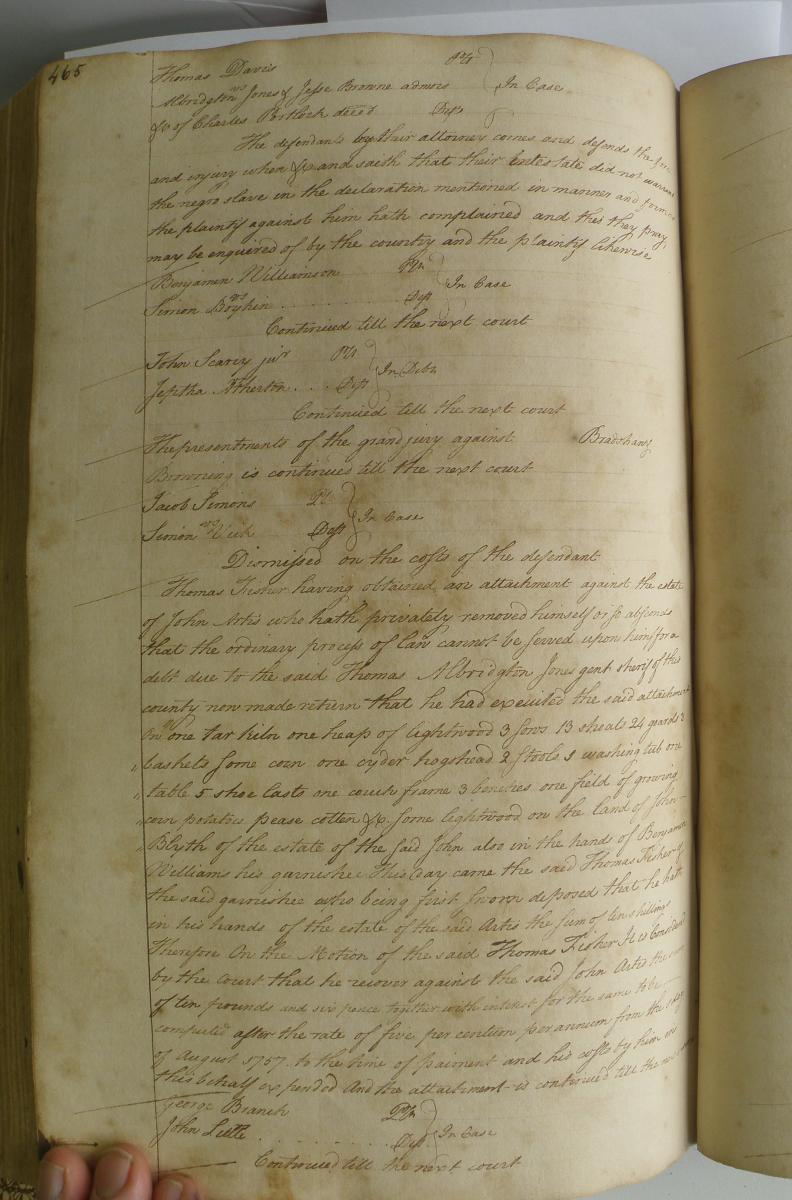 465
Thomas Davis Plt
vs In Case
Albridgton Jones & Jesse Browne admors
&c of Charles Portlock decd Deft
The defendants by their attorney comes and defends the force
and injury when &c and saith that their intestate did not warrant
the negro slave in the declaration mentioned in manner and form as
the plaintif against him hath complained and this they pray
may be enquired of by the country and the plaintif likewise
Benjamin Williamson Plt
vs In Case
Simon Boykin Deft
Continued till the next court
John Scarcy junr Plt
In Debt
Jeptha Atherton Deft
Continued till the next court
The presentments of the grand jury against Bradshaw
Browning is continued till the next court
Jacob Simons Plt
vs In Case
Simon Deft
Dismissed on the costs of the defendant
Thomas Fisher having obtained an attachment against the estate
of John Artis who hath privately removed himself or so absconds
that the ordinary process of law cannot be served upon him for a
debt due to the said Thomas Albridgton Jones gent sherif of this
county now made return that he had executed the said attachment
on one tar kiln one heap of lightwood 3 sows 13 shoats 24 3
baskets some corn one cyder hogshead 2 stools 1 washing tub one
table 5 shoe lasts one couch frame 3 benches one field of growing
corn potatoes pease cotten &c. some lightwood on the land of John
Blyth of the estate of the said John also in the hands of Benjamin
Williams his garnishee This day came the said Thomas Fisher &
the said garnishee who being first sworn deposed that he hath
in his hands of the estate of the said Artis the sum of ten shillings
Therefore On the Motion of the said Thomas Fisher It is Considered
by the court that he recover against the said John Artis the sum
of ten pounds and six pence together with interest for the same to be
computed after the rate of five per centum per annum from the
of August 1757. to the time of paiment and his costs by him in
this behalf expended And the attachment is continued till the next
George Branch Plt
In Case
John Little Deft
Continued till the next court